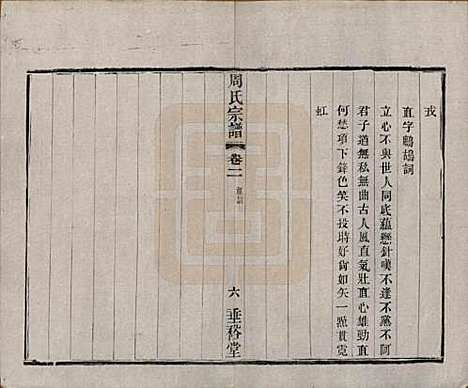 戎
直字鷓鴣詞
立心不與世人同底蘊懸針嘆不逢不黨不阿
君子道無私無曲古人風直氣壯直心雄勁直
何愁項下鋒色笑不投時好尚如矢一點貫霓
虹
周氏宗譜
卷二
六
垂裕堂